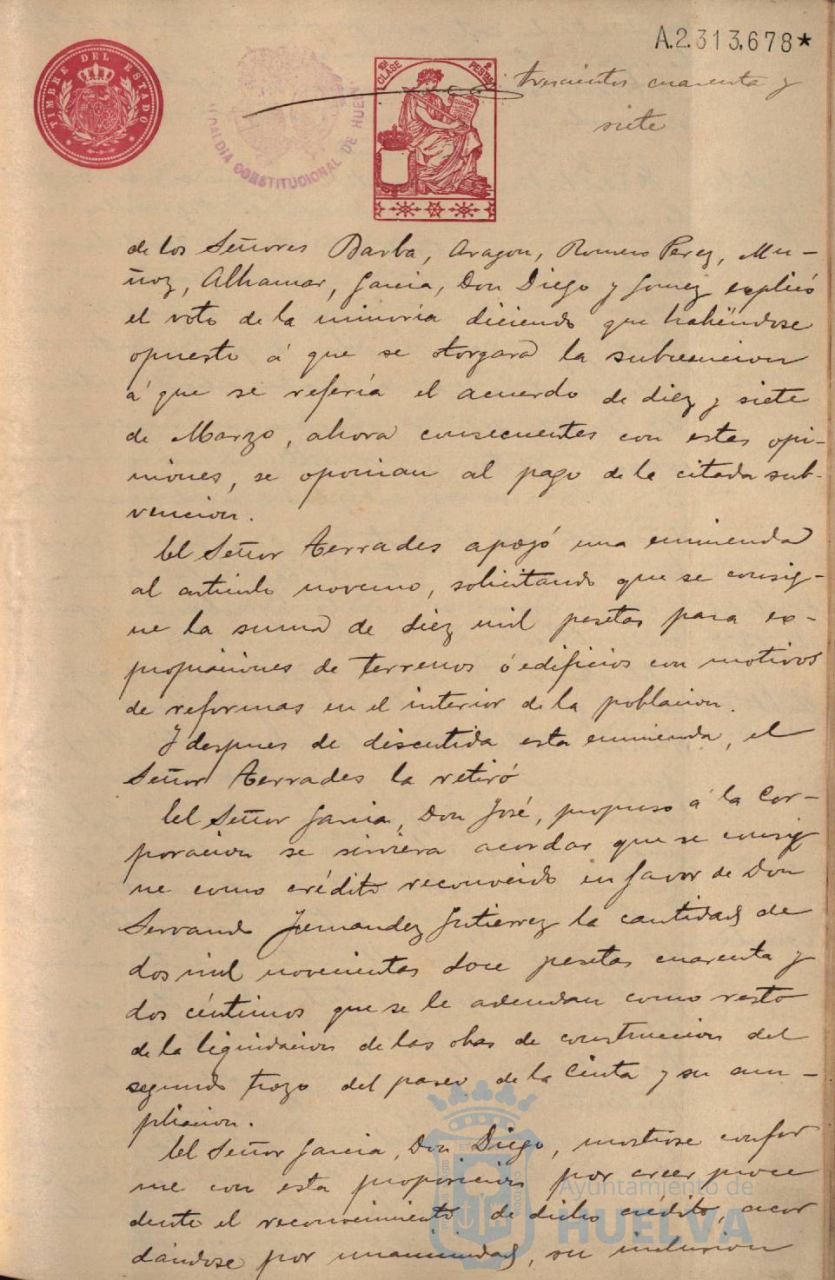 A.2.313.678*
TIMBRE DEL ESTADO
ALCALDIA CONSTITUCIONAL DE HUELVA
CLASE PESETA
trescientos cuarenta y
siete
de los Señores Barba, Aragon, Romero Perez, Mu-
ñoz, Alhamar, Garcia, Don Diego y Gomez explicó
el voto de la minoría diciendo que habiéndose
opuesto á que se otorgara la subvencion
á que se refería el acuerdo de diez y siete
de Marzo, ahora consecuentes con estas opi-
niones, se oponian al pago de la citada sub-
vencion.
El Señor Terrades apoyó una enmienda
al artículo noveno, solicitando que se consig-
ne la suma de diez mil pesetas para ex-
propiaciones de terrenos ó edificios con motivos
de reformas en el interior de la poblacion.
Y despues de discutida esta enmienda, el
Señor Terrades la retiró
El Señor Garcia, Don José, propuso á la Cor-
poracion se sirviera acordar que se consig
ne como crédito reconocido en favor de Don
Servando Fernandez Gutierrez la cantidad de
dos mil novecientas doce pesetas cuarenta y
dos céntimos que se le adeudan como resto
de la liquidacion de las obras de construccion del
segundo trozo del paseo de la Cinta y su am-
pliacion.
El Señor Garcia, Don Diego, mostrose confor
me con esta proposicion por creer proce
dente el reconocimiento de dicho crédito, acor
dándose por unanimidad, su inclusion
Ayuntamiento de
HUELVA